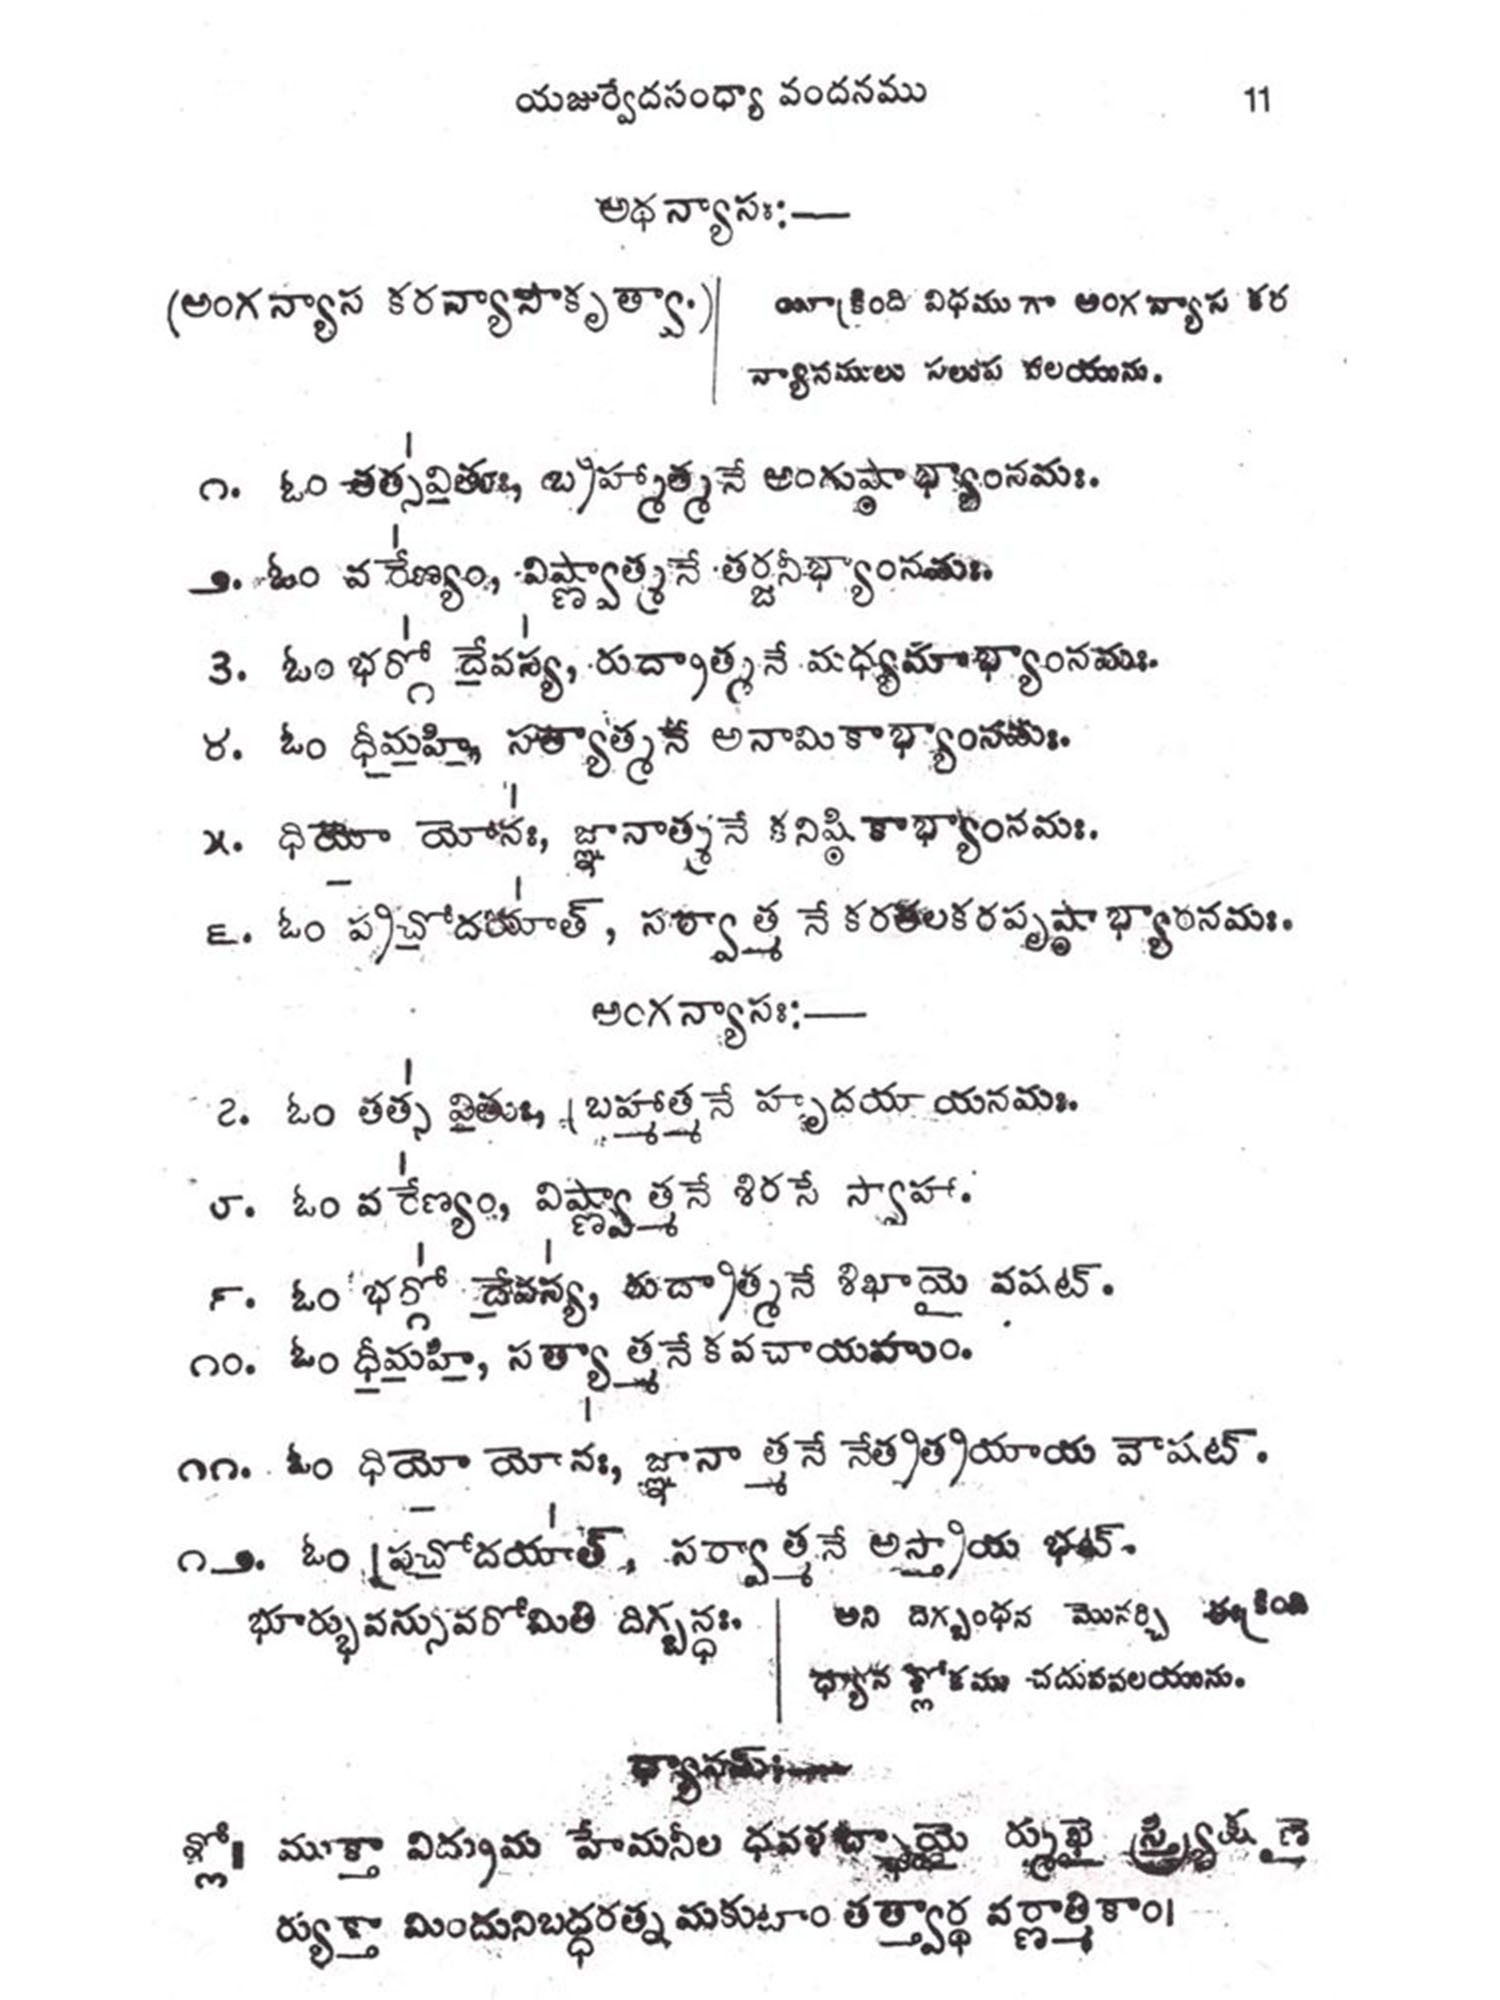 యజుర్వేదసంధ్యా వందనము 11
అథన్యాసః:—
(అంగన్యాస కరన్యాసాకృత్వా.) యీక్రింది విధముగా అంగన్యాస కర
న్యాసములు సలుప వలయును.
౧. ఓం తత్స॑వి॒తుః, బ్రహ్మాత్మనే అంగుష్ఠాభ్యాంనమః.
౨. ఓం వరే॑ణ్యం, విష్ణ్వాత్మనే తర్జనీభ్యాంనమః.
3. ఓం భర్గో॑ దే॒వస్య॑, రుద్రాత్మనే మధ్యమాభ్యాంనమః.
౪. ఓం ధీ॒మ॒హి॒, సత్యాత్మనే అనామికాభ్యాంనమః.
౫. ధియో॒ యోనః॑, జ్ఞానాత్మనే కనిష్ఠికాభ్యాంనమః.
౬. ఓం ప్రచో॒దయా॑త్, సర్వాత్మనే కరతలకరపృష్ఠాభ్యాంనమః.
అంగన్యాసః:—
౭. ఓం తత్స॑ వి॒తుః, బ్రహ్మాత్మనే హృదయాయనమః.
౮. ఓం వరే॑ణ్యం, విష్ణ్వాత్మనే శిరసే స్వాహా.
౯. ఓం భర్గో॑ దే॒వస్య॑, రుద్రాత్మనే శిఖాయై వషట్.
౧౦. ఓం ధీ॒మ॒హి॒, సత్యాత్మనేకవచాయహుం.
౧౧. ఓం ధియో॒ యోనః॑, జ్ఞానాత్మనే నేత్రత్రయాయ వౌషట్.
౧౨. ఓం ప్రచో॒దయా॑త్, సర్వాత్మనే అస్త్రాయ ఫట్.
భూర్భువస్సువరోమితి దిగ్బన్ధః. అని దిగ్బంధన మొనర్చి ఈక్రింది
ధ్యాన శ్లోకము చదువవలయును.
ధ్యానమ్:—
శ్లో॥ ముక్తా విద్రుమ హేమనీల ధవళ
ర్యుక్తా మిందునిబద్ధరత్న మకుటాం తత్త్వార్థ వర్ణాత్మికాం।